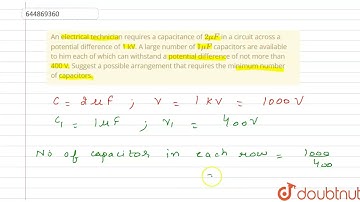 644869360
An electrical technician requires a capacitance of 2μF in a circuit across a
potential difference of 1 kV. A large number of 1μF capacitors are available
to him each of which can withstand a potential difference of not more than
400 V. Suggest a possible arrangement that requires the minimum number
of capacitors.
C = 2μF ; V = 1 kV = 1000V
C₁ = 1μF ; V₁ = 400V
No of capacitor in each row = 1000/400
=
doubtnut